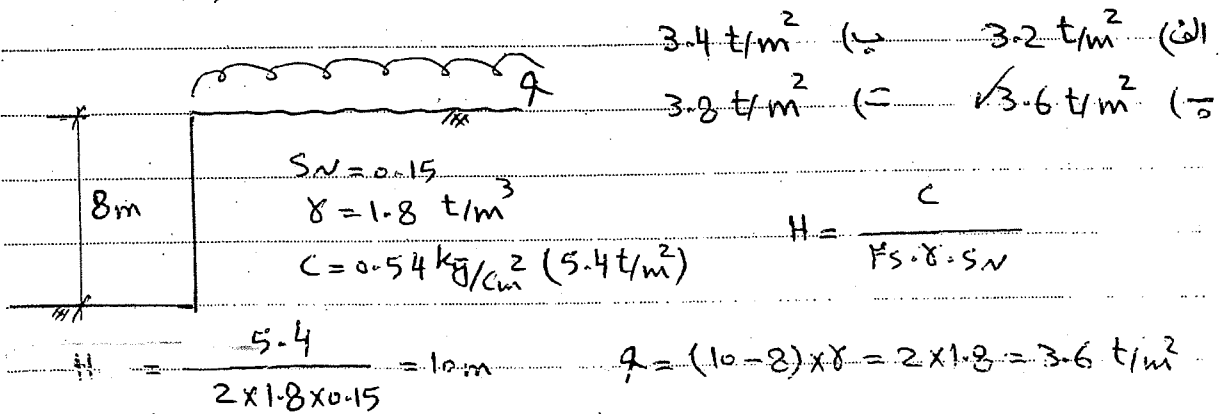 الف) 3.2 t/m² ب) 3.4 t/m²
ج) 3.6 t/m² ✓ د) 3.8 t/m²
q
8m
SN = 0.15
γ = 1.8 t/m³
C = 0.54 kg/cm² (5.4 t/m²)
H = C / FS.γ.SN
H = 5.4 / 2×1.8×0.15 = 10m
q = (10-8)×γ = 2×1.8 = 3.6 t/m²